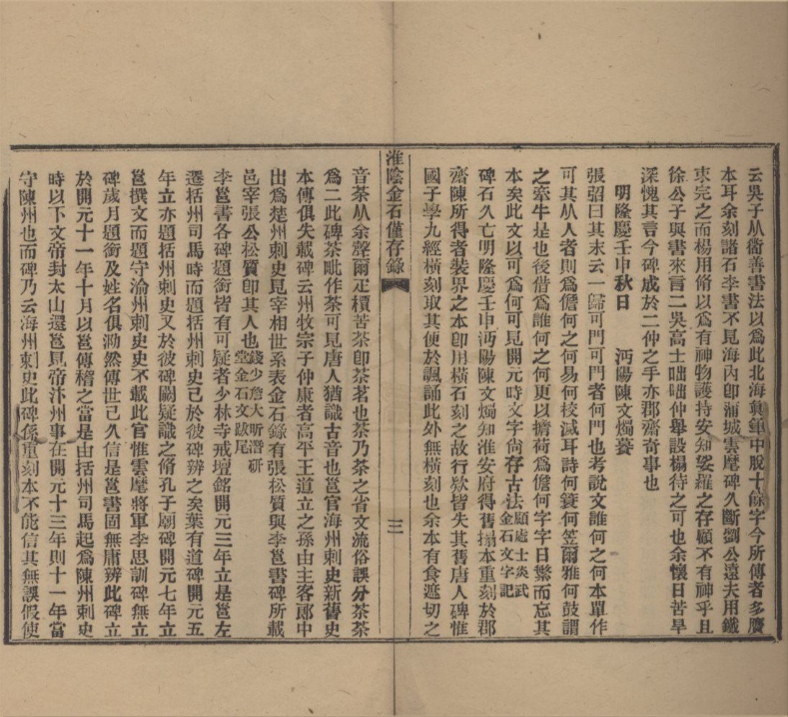 云吳子从衞善書法以爲此北海眞筆中脫十餘字今所傳者多贋
本耳余刻諸石李書不見海內卽蒲城雲麾碑久斷劉公遠夫用鐵
束完之而楊用脩以爲有神物護持安知娑羅之存顧不有神乎且
徐公子與書來言二吳高士咄咄仲舉設榻待之可也余懷日苦旱
深愧其言今碑成於二仲之手亦郡齋奇事也
明隆慶壬申秋日 沔陽陳文燭譔
張弨曰其末云一歸可門可門者何門也考說文誰何之何本單作
可其从人者則爲儋何之何易何校滅耳詩何簑何笠爾雅何鼓謂
之牽牛是也後借爲誰何之何更以擔荷爲儋何字字日繁而忘其
本矣此文以可爲何可見開元時文字尙存古法顧處士炎武金石文字記
碑石久亡明隆慶壬申沔陽陳文燭知淮安府得舊搨本重刻於郡
齋陳所得者裝界之本卽用橫石刻之故行欵皆失其舊唐人碑惟
國子學九經橫刻取其便於諷誦此外無橫刻也余本有食遮切之
淮陰金石僅存錄
三
音荼从余聲爾疋檟苦荼卽茶茗也茶乃荼之省文流俗誤分荼茶
爲二此碑荼毗作茶可見唐人猶識古音也邕官海州刺史新舊史
本傳俱失載碑云州牧宗子仲康者高平王道立之孫由主客郎中
出爲楚州刺史見宰相世系表金石錄有張松質與李邕書碑所載
邑宰張公松質卽其人也錢少詹大昕潛研堂金石文跋尾
李邕書各碑題銜皆有可疑者少林寺戒壇銘開元三年立是邕左
遷括州司馬時而題括州刺史己於彼碑辨之矣葉有道碑開元五
年立亦題括州刺史又於彼碑闕疑識之脩孔子廟碑開元七年立
邕撰文而題守渝州刺史史不載此官惟雲麾將軍李思訓碑無立
碑歲月題銜及姓名俱泐然傳世己久信是邕書固無庸辨此碑立
於開元十一年十月以邕傳稽之當是由括州司馬起爲陳州刺史
時以下文帝封太山還邕見帝汴州事在開元十三年則十一年當
守陳州也而碑乃云海州刺史此碑係重刻本不能信其無誤假使